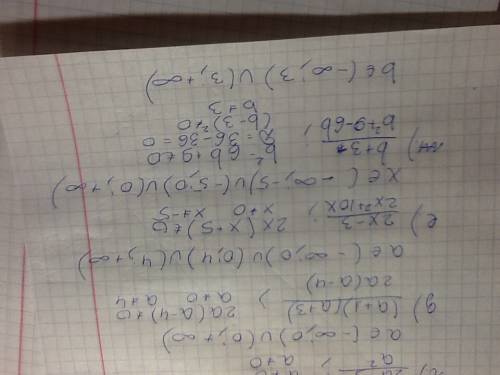 a² a≠0
a∈(-∞;0)∪(0;+∞)
g) (a+1)(a+3) / 2a(a-4) ; 2a(a-4)≠0
a≠0 a≠4
a∈(-∞;0)∪(0;4)∪(4;+∞)
e) 2x-3 / 2x²+10x ; 2x(x+5)≠0
x≠0 x≠-5
x∈(-∞;-5)∪(-5;0)∪(0;+∞)
) b+3 / b²+9-6b ; b²-6b+9≠0
D=36-36=0
(b-3)²≠0
b≠3
b∈(-∞;3)∪(3;+∞)